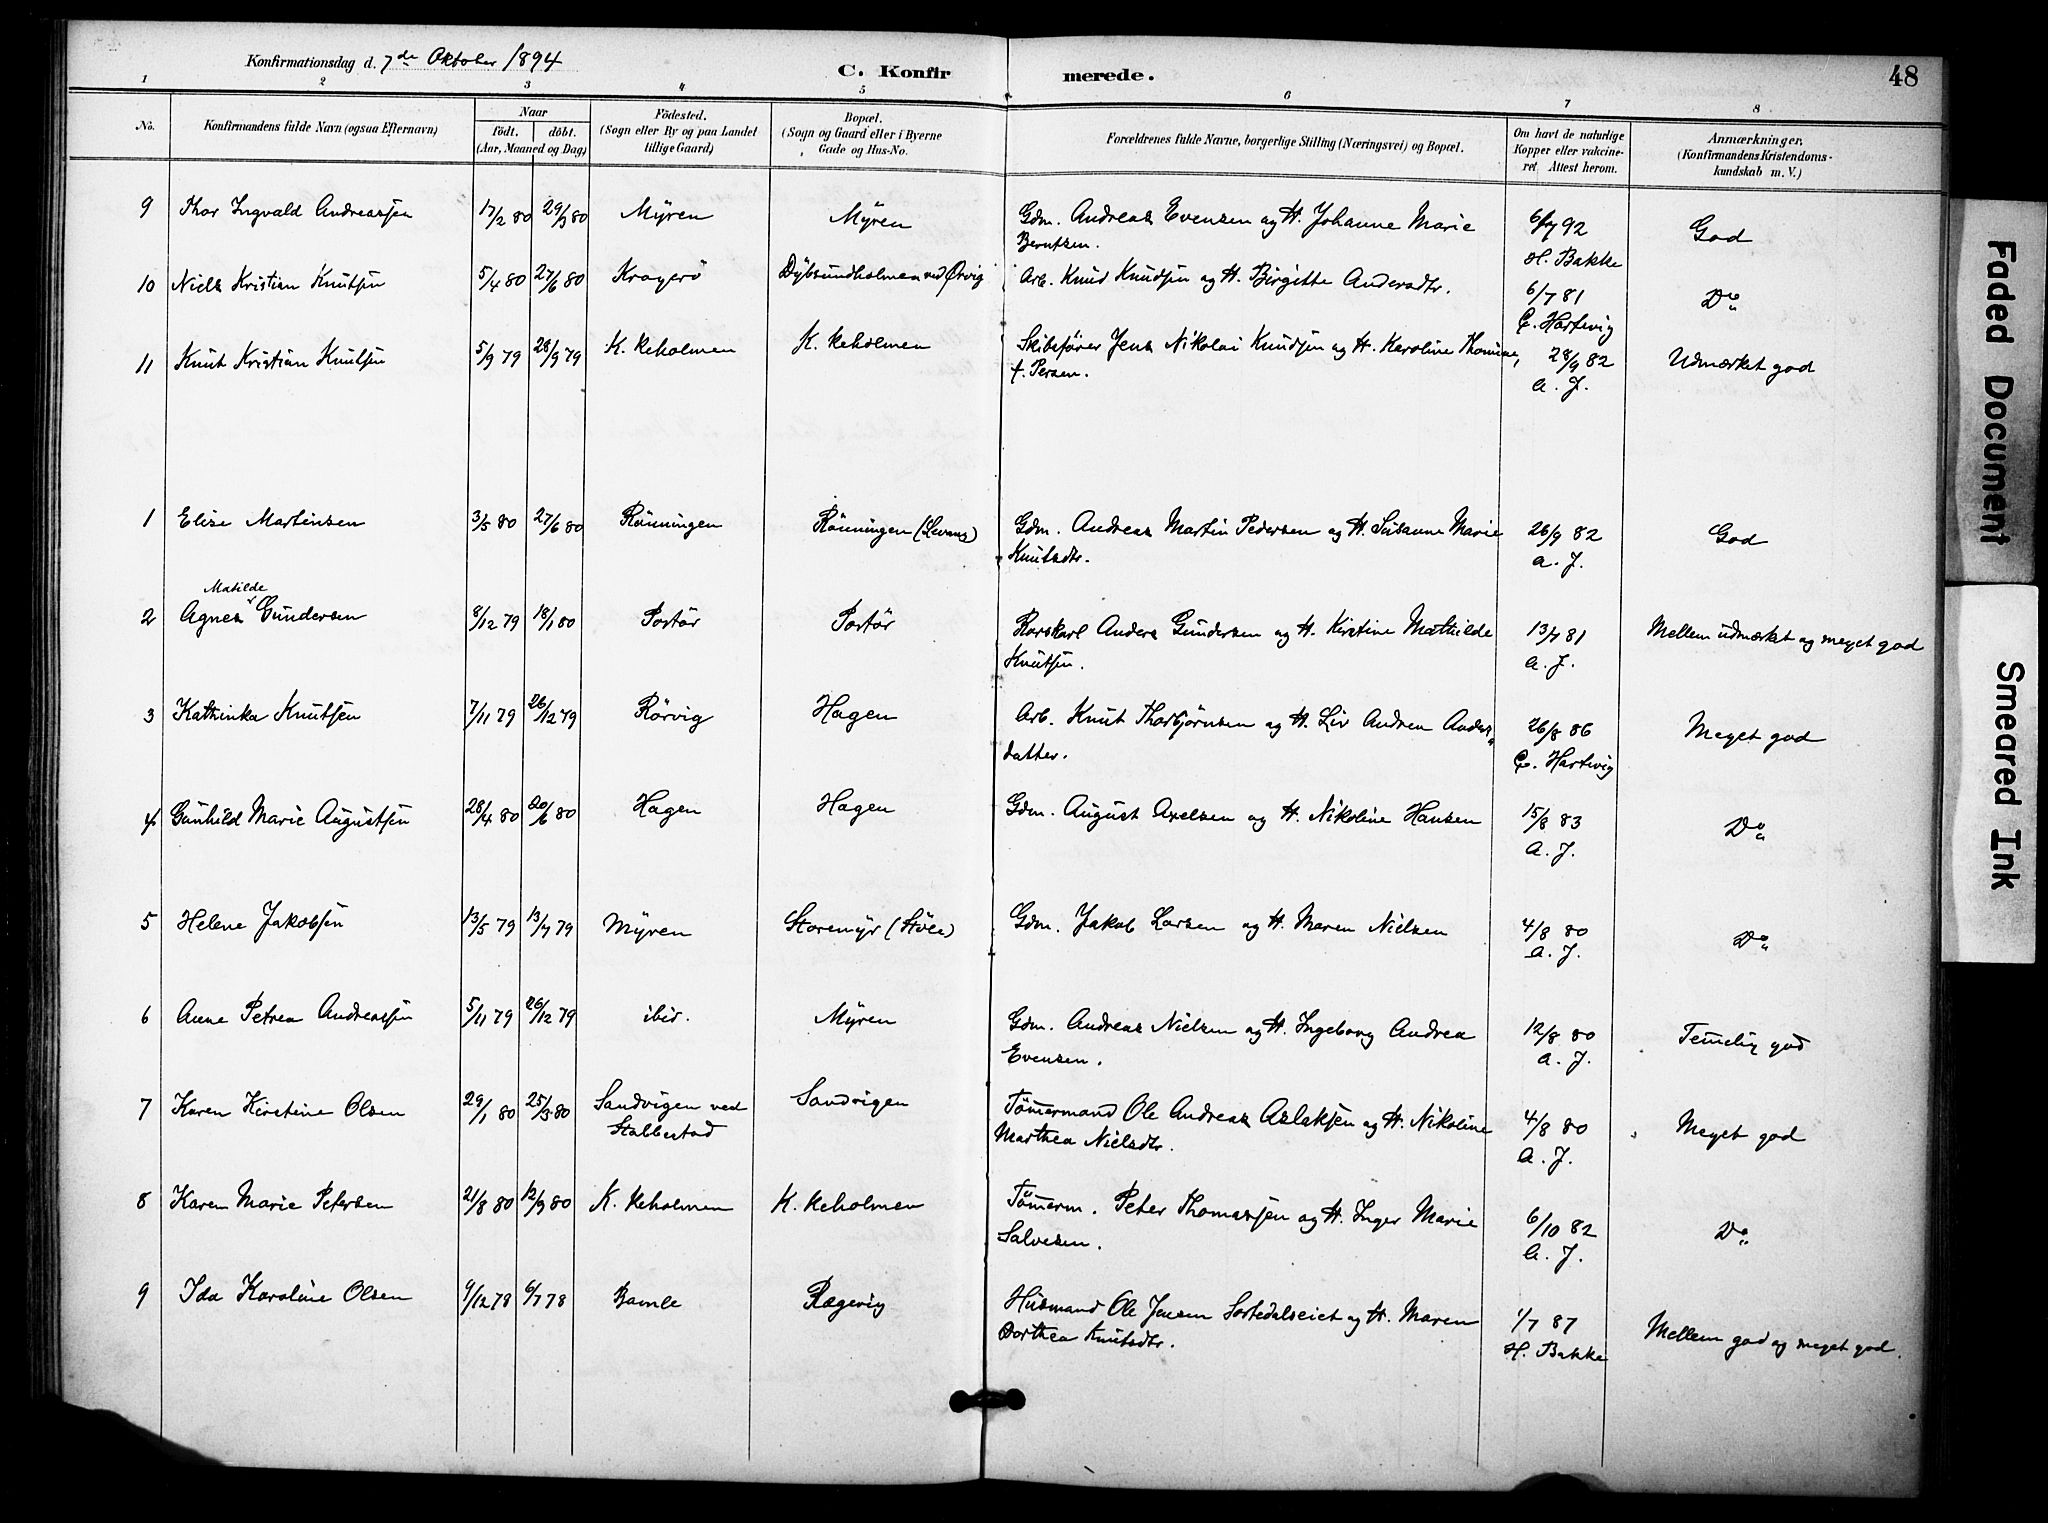 Konfirmationsdag d. 7de Oktober 1894
C. Konfir merede. 48
1 2 3 4 5 6 7 8
No. Konfirmandens fulde Navn (ogsaa Efternavn) Naar født. døbt. (Aar, Maaned og Dag) Födested. (Sogn eller By og paa Landet tillige Gaard) Bopæl. (Sogn og Gaard eller i Byerne Gade og Hus-No. Forældrenes fulde Navne, borgerlige Stilling (Næringsvei) og Bopæl. Om havt de naturlige Kopper eller vakcineret Attest herom. Anmærkninger. (Konfirmandens Kristendomskundskab m. V.)
9 Thor Ingvald Andreassen 17/2 80 29/3 80 Myren Myren Gdm. Andreas Evensen og H. Johanne Marie 6/7 92 God
Berntsen. H. Bakke
10 Niels Kristian Knutsen 5/4 80 27/6 80 Kragerö Dybsundholmen ved Ørvig Arb. Knud Knudsen og H. Birgitte Andersdtr. 6/7 81 Do
C. Hartvig
11 Knut Kristian Knutsen 5/9 79 28/9 79 K. Reholmen K. Reholmen Skibsfører Jens Nikolai Knudsen og H. Karoline Thomine, 28/9 82 Udmærket god
f. Persen. A. J.
1 Elise Martinsen 3/5 80 27/6 80 Rönningen Rönningen (Levang) Gdm. Andreas Martin Pedersen og H. Susanne Marie 26/9 82 God
Knutsdtr. A. J.
Matilde
2 Agnes Gundersen 8/12 79 18/1 80 Portör Portör Anders Gundersen og H. Kirstine Mathilde 13/7 81 Mellem udmærket og meget god
Knutsen. A. J.
3 Kathinka Knutsen 7/11 79 26/12 79 Rörvig Hagen Arb. Knut Thorbjørnsen og H. Liv Andrea Anders- 26/8 86 Meget god
datter. C. Hartvig
4 Gunhild Marie Augustsen 28/4 80 20/6 80 Hagen Hagen Gdm. August Axelsen og H. Nikoline Hansen 15/8 83 Do
A. J.
5 Helene Jakobsen 13/5 79 13/7 79 Myren Storemyr (Stöle) Gdm. Jakob Larsen og H. Maren Nielsen 4/8 80 Do
A. J.
6 Anne Petrea Andreassen 5/11 79 26/12 79 ibid. Myren Gdm. Andreas Nielsen og H. Ingeborg Andrea 12/8 80 Temelig god
Evensen. A. J.
7 Karen Kirstine Olsen 29/1 80 25/3 80 Sandvigen ved Sandvigen Tømermand Ole Andreas Aslaksen og H. Nikoline 4/8 80 Meget god
Stabbestad Marthea Nielsdtr. A. J.
8 Karen Marie Petersen 21/8 80 12/9 80 K. Reholmen K. Reholmen Tømerm. Peter Thomassen og H. Inger Marie 6/10 82 Do
Salvesen. A. J.
9 Ida Karoline Olsen 9/12 78 6/7 78 Bamle Rægevig Husmand Ole Jensen Sortedalseiet og H. Maren 1/7 87 Mellem god og meget god.
Dorthea Knutsdtr. H. Bakke
Faded Document
Smeared Ink